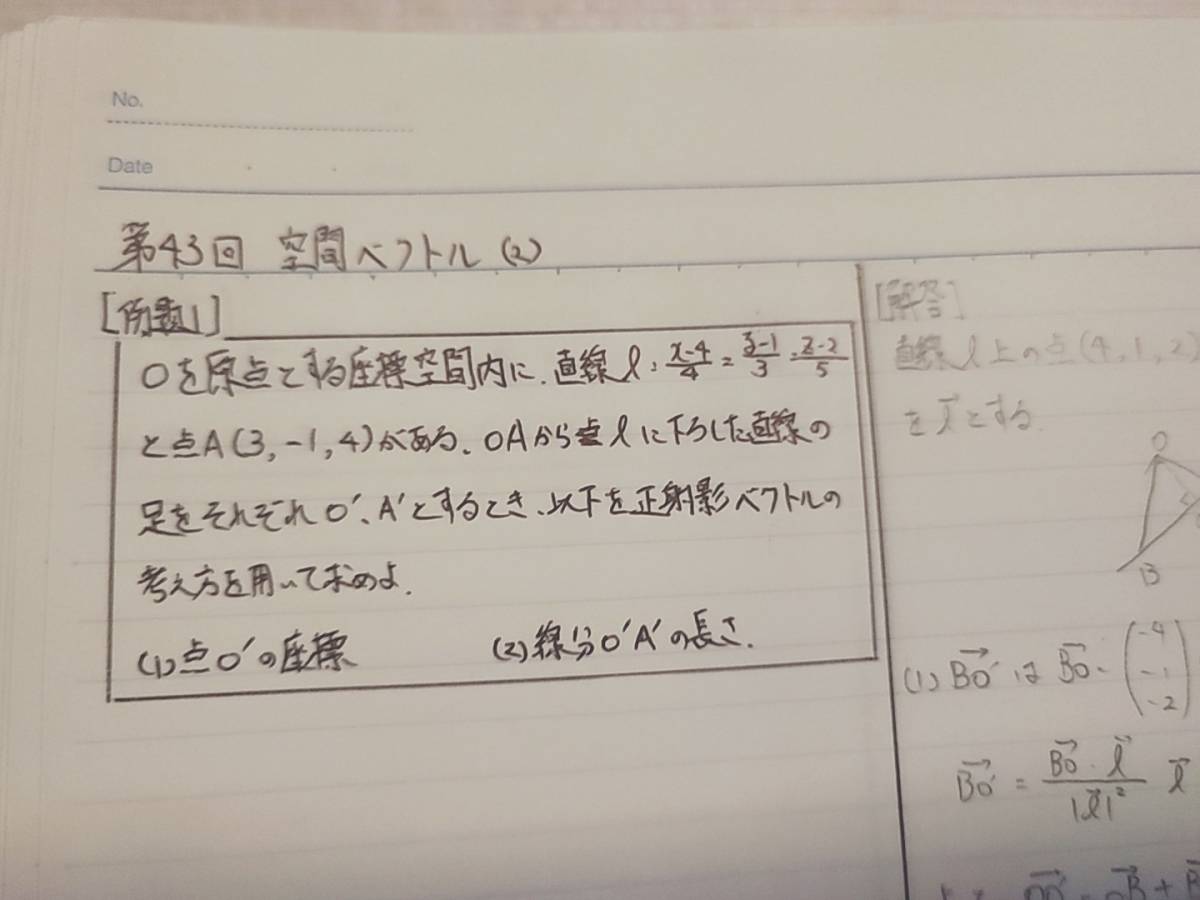 No.
Date
第43回 空間ベクトル(2)
[例題1]
Oを原点とする座標空間内に、直線l: x-4/4 = y-1/3 = z-2/5
と点A(3, -1, 4)がある、OAから点lに下ろした直線の
足をそれぞれO'、A'とするとき、以下を正射影ベクトルの
考え方を用いて求めよ.
(1)点O'の座標 (2)線分O'A'の長さ.
[解答]
直線l上の点(4, 1, 2)
をl→とする.
O
B
(1) BO'→ は BO→ = (-4 -1 -2)
BO'→ = BO→・l→/|l→|² l→
OO'→ = OB→ +